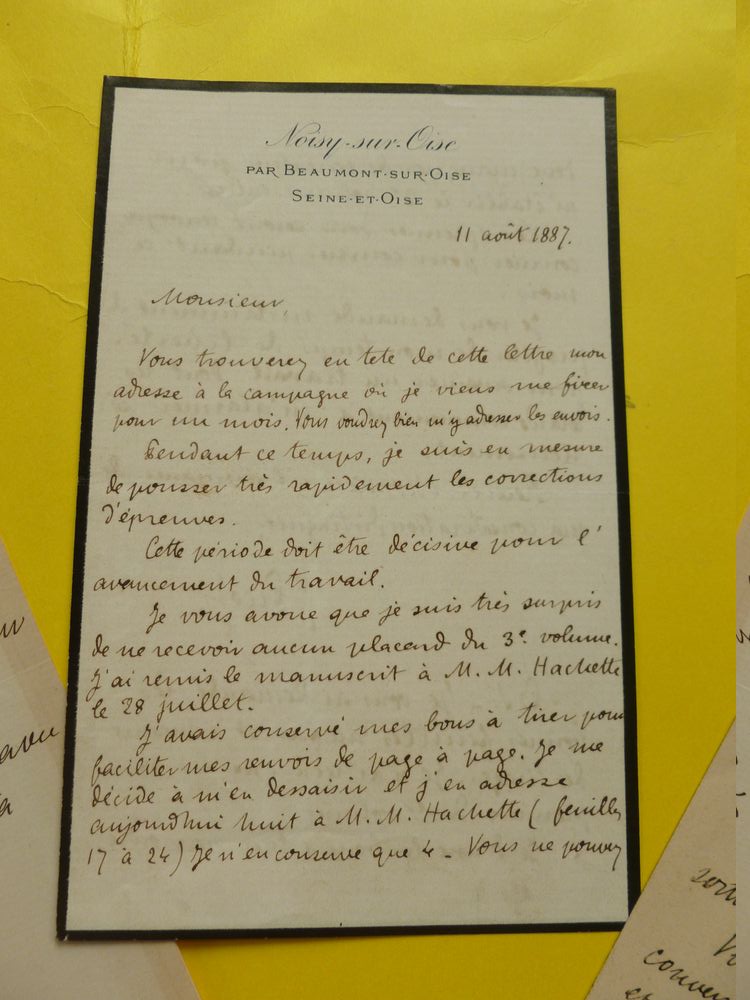 Noisy-sur-Oise
PAR BEAUMONT-SUR-OISE
SEINE-ET-OISE
11 août 1887.
Monsieur,
Vous trouverez en tete de cette lettre mon
adresse à la campagne où je viens me fixer
pour un mois. Vous voudrez bien m'y adresser les envois.
Pendant ce temps, je suis en mesure
de pousser très rapidement les corrections
d'épreuves.
Cette période doit être décisive pour l'
avancement du travail.
Je vous avoue que je suis très surpris
de ne recevoir aucun placard du 3e volume.
J'ai remis le manuscrit à M. M. Hachette
le 28 juillet.
J'avais conservé mes bons à tirer pour
faciliter mes renvois de page à page. Je me
décide à m'en dessaisir et j'en adresse
aujourdhui huit à M. M. Hachette (feuilles
17 à 24) Je n'en conserve que 4. Vous ne pouvez